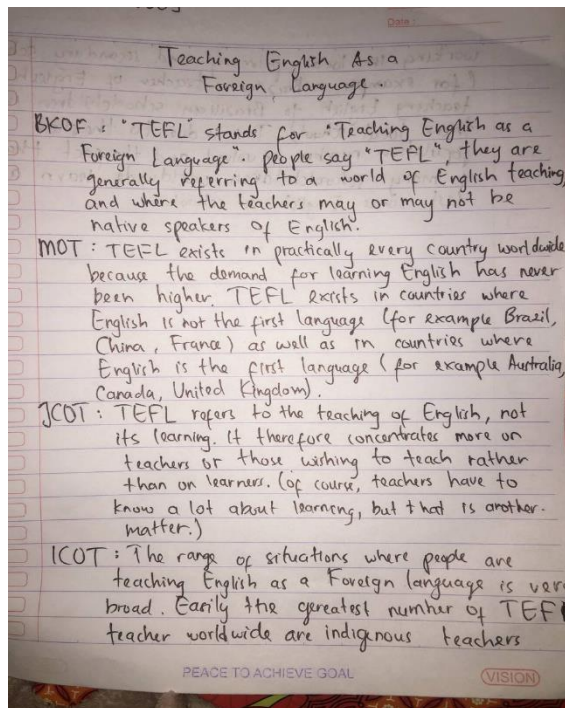 Date :
Teaching English As a
Foreign Language
BKOF : "TEFL" stands for "Teaching English as a
Foreign Language". people say "TEFL" they are
generally referring to a world of English teaching,
and where the teachers may or may not be
native speakers of English.
MOT : TEFL exists in practically every country worldwide
because the demand for learning English has never
been higher. TEFL exists in countries where
English is not the first language (for example Brazil,
China, France) as well as in countries where
English is the first language (for example Australia,
Canada, United Kingdom).
JCOT : TEFL refers to the teaching of English, not
its learning. It therefore concentrates more on
teachers or those wishing to teach rather
than on learners. (of course, teachers have to
know a lot about learning, but that is another.
matter.)
ICOT : The range of situations where people are
teaching English as a Foreign language is very
broad. Easily the gereatest number of TEFL
teacher worldwide are indigenous teachers
PEACE TO ACHIEVE GOAL
VISION